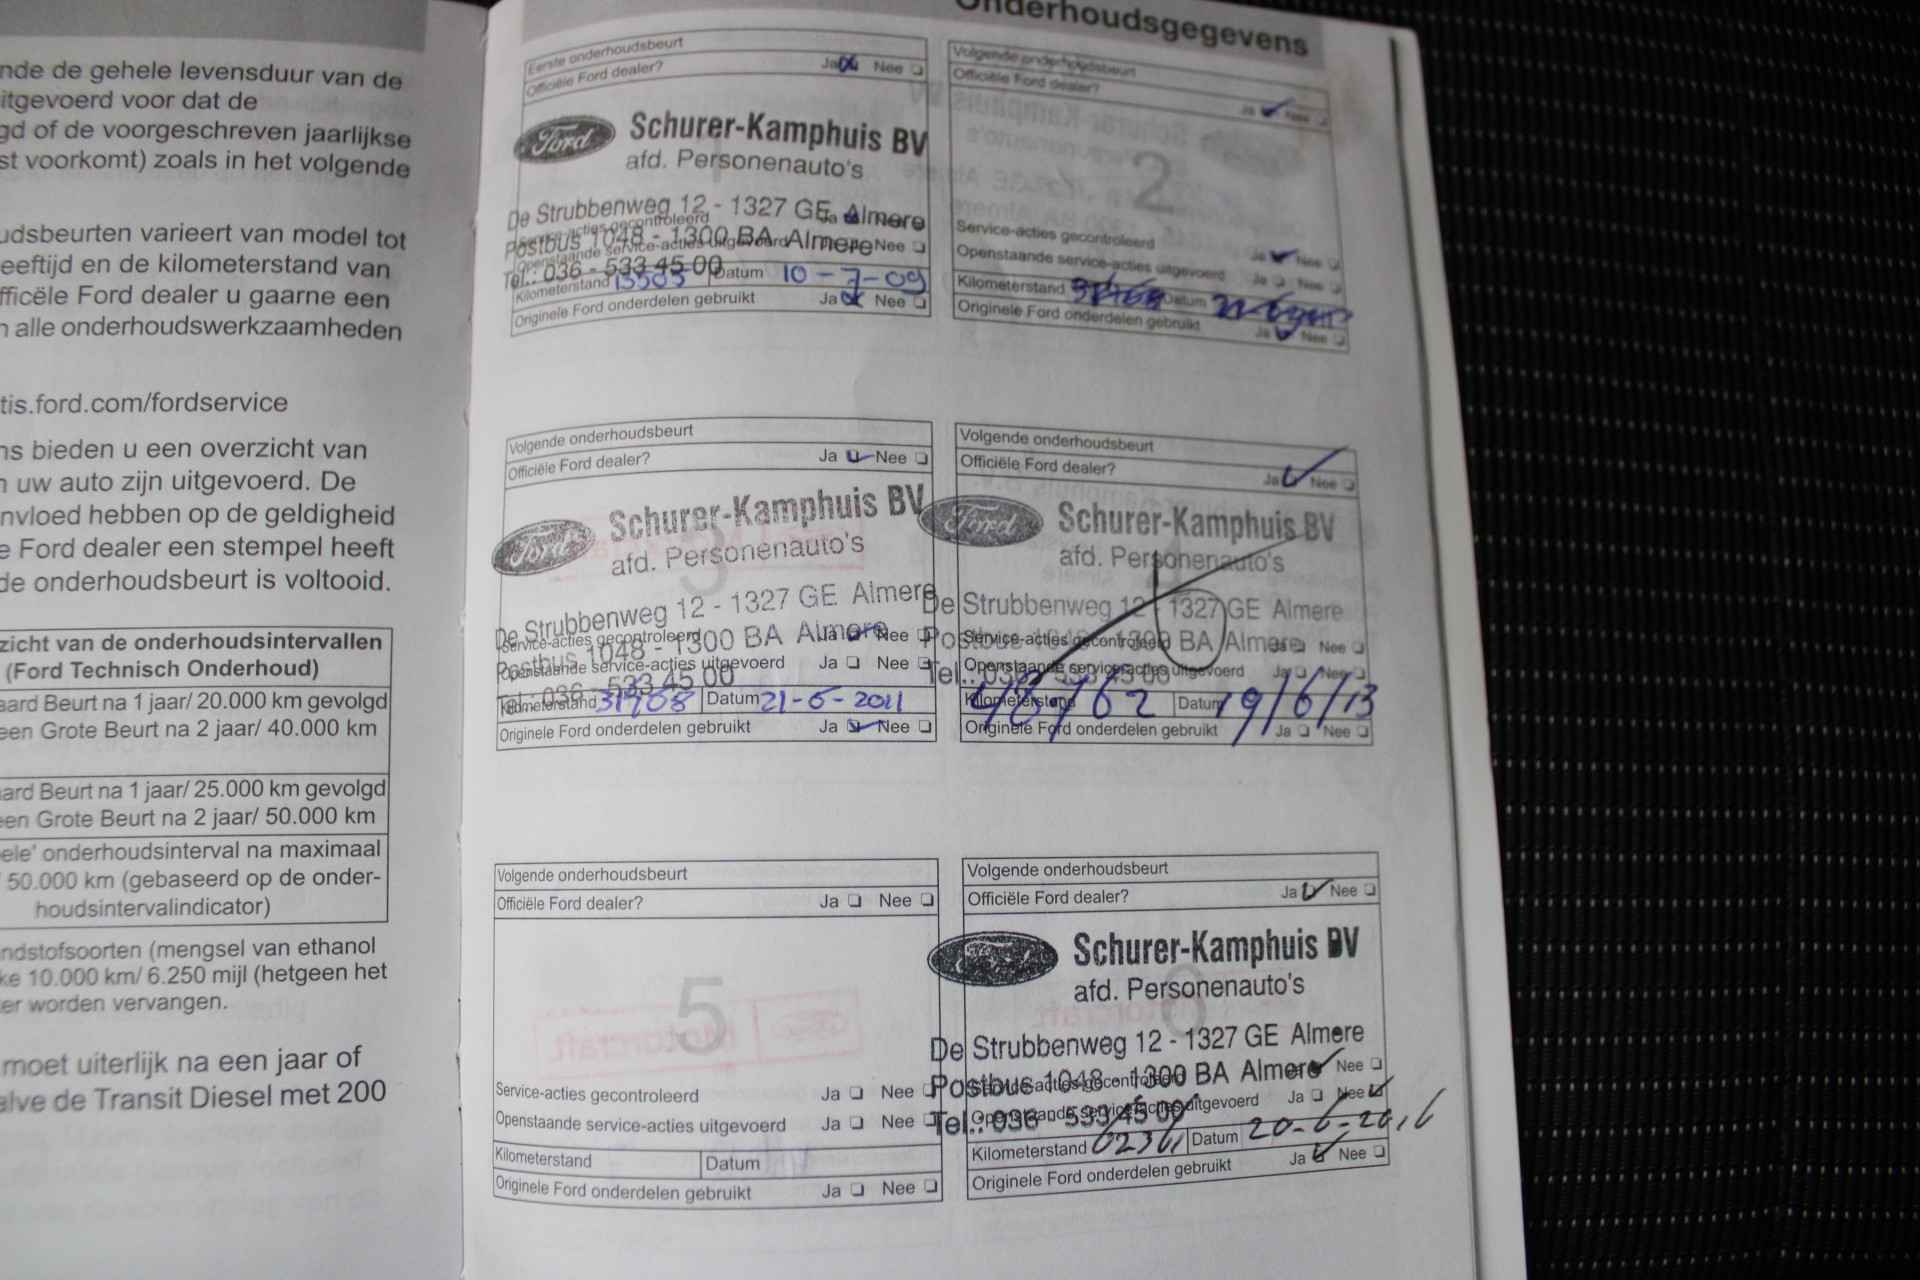 nde de gehele levensduur van de
itgevoerd voor dat de
gd of de voorgeschreven jaarlijkse
st voorkomt) zoals in het volgende
udsbeurten varieert van model tot
eeftijd en de kilometerstand van
fficële Ford dealer u gaarne een
n alle onderhoudswerkzaamheden
tis.ford.com/fordservice
ns bieden u een overzicht van
n uw auto zijn uitgevoerd. De
nvloed hebben op de geldigheid
e Ford dealer een stempel heeft
de onderhoudsbeurt is voltooid.
zicht van de onderhoudsintervallen
(Ford Technisch Onderhoud)
aard Beurt na 1 jaar/ 20.000 km gevolgd
een Grote Beurt na 2 jaar/ 40.000 km
aard Beurt na 1 jaar/ 25.000 km gevolgd
een Grote Beurt na 2 jaar/ 50.000 km
ele' onderhoudsinterval na maximaal
50.000 km (gebaseerd op de onder-
houdsintervalindicator)
ndstofsoorten (mengsel van ethanol
ke 10.000 km/ 6.250 mijl (hetgeen het
er worden vervangen.
moet uiterlijk na een jaar of
alve de Transit Diesel met 200
Onderhoudsgegevens
Eerste onderhoudsbeurt
Officiële Ford dealer? Ja Nee
Ford Schurer-Kamphuis BV
afd. Personenauto's
De Strubbenweg 12 - 1327 GE Almere
Service-acties gecontroleerd Ja
Postbus 1048 - 1300 BA Almere
Openstaande service-acties uitgevoerd Nee
Tel.: 036 - 533 45 00
Kilometerstand Datum 10-7-09
Originele Ford onderdelen gebruikt Ja Nee
Volgende onderhoudsbeurt
Officiële Ford dealer? Ja Nee
2
Service-acties gecontroleerd Ja Nee
Openstaande service-acties uitgevoerd Ja Nee
Kilometerstand Datum
Originele Ford onderdelen gebruikt Ja Nee
Volgende onderhoudsbeurt
Officiële Ford dealer? Ja Nee
3
Ford Schurer-Kamphuis BV
afd. Personenauto's
De Strubbenweg 12 - 1327 GE Almere
Service-acties gecontroleerd Ja Nee
Postbus 1048 - 1300 BA Almere
Openstaande service-acties uitgevoerd Ja Nee
Tel.: 036 - 533 45 00
Kilometerstand 31768 Datum 21-6-2011
Originele Ford onderdelen gebruikt Ja Nee
Volgende onderhoudsbeurt
Officiële Ford dealer? Ja Nee
4
Ford Schurer-Kamphuis BV
afd. Personenauto's
De Strubbenweg 12 - 1327 GE Almere
Service-acties gecontroleerd Nee
Postbus 1048 - 1300 BA Almere
Openstaande service-acties uitgevoerd Ja Nee
Tel.: 036 - 533 45 00
Kilometerstand 48762 Datum 19/6/13
Originele Ford onderdelen gebruikt Ja Nee
Volgende onderhoudsbeurt
Officiële Ford dealer? Ja Nee
5
Service-acties gecontroleerd Ja Nee
Openstaande service-acties uitgevoerd Ja Nee
Kilometerstand Datum
Originele Ford onderdelen gebruikt Ja Nee
Volgende onderhoudsbeurt
Officiële Ford dealer? Ja Nee
6
Ford Schurer-Kamphuis BV
afd. Personenauto's
De Strubbenweg 12 - 1327 GE Almere
Postbus 1048 - 1300 BA Almere
Service-acties gecontroleerd Nee
Tel.: 036 533 45 00
Openstaande service-acties uitgevoerd Ja Nee
Kilometerstand Datum 20-6-2016
Originele Ford onderdelen gebruikt Ja Nee